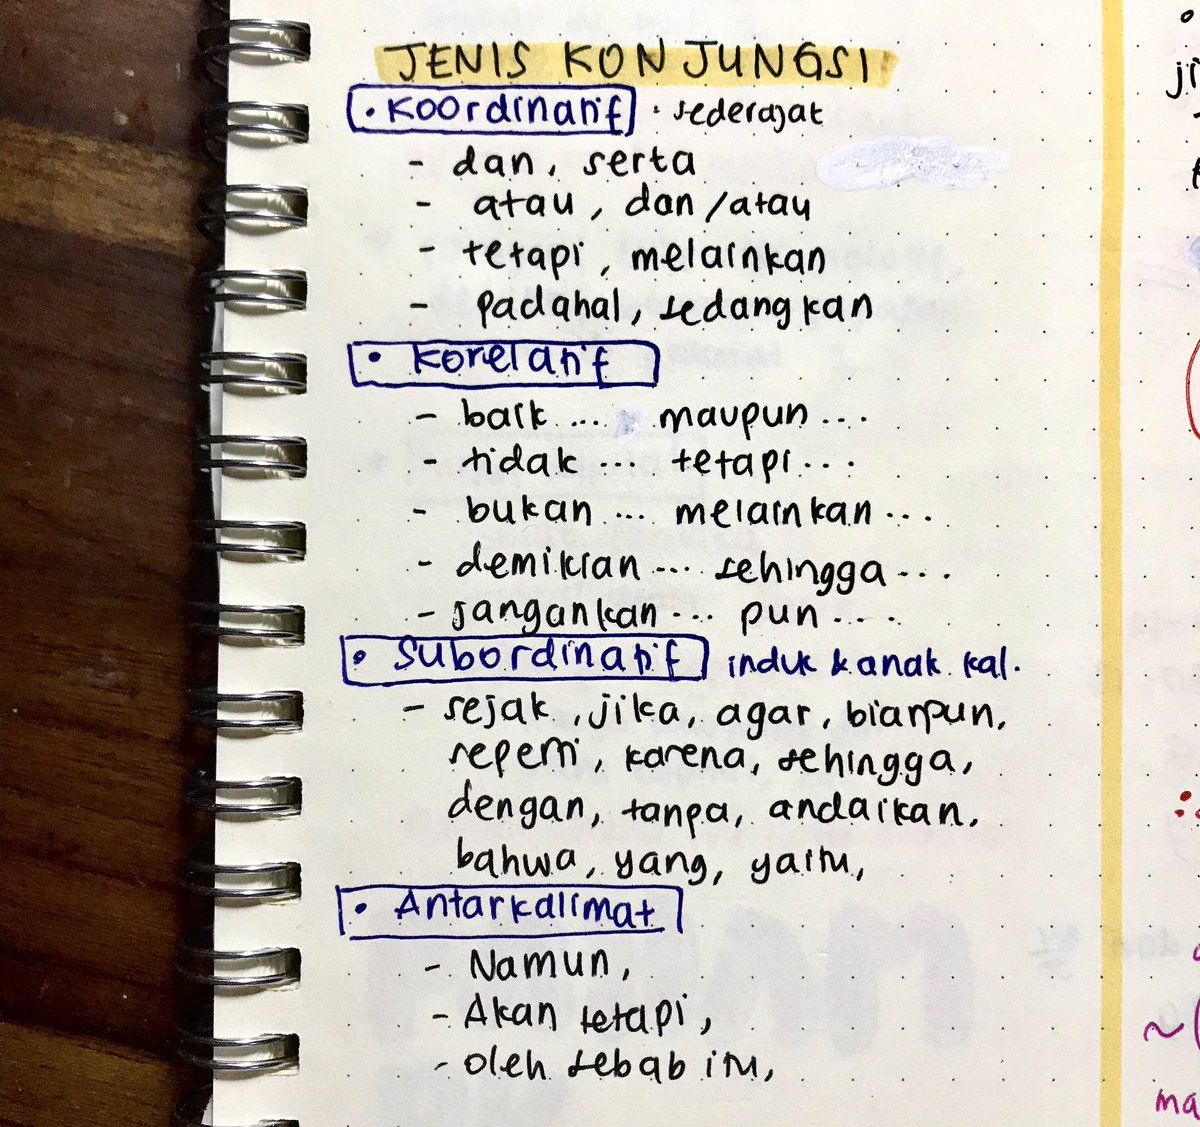 JENIS KONJUNGSI
• Koordinatif • sederajat
- dan, serta
- atau, dan/atau
- tetapi, melainkan
- padahal, sedangkan
• Korelatif
- baik ... maupun ...
- tidak ... tetapi ...
- bukan ... melainkan ...
- demikian ... sehingga ...
- jangankan ... pun ...
• Subordinatif induk kanak kal.
- sejak, jika, agar, biarpun,
seperti, karena, sehingga,
dengan, tanpa, andaikan,
bahwa, yang, yaitu,
• Antarkalimat
- Namun,
- Akan tetapi,
- oleh sebab itu,
ji
ma